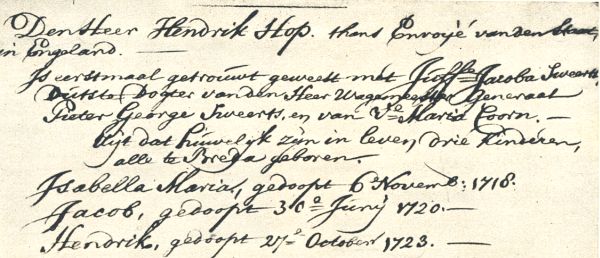 Den Heer Hendrik Hop. thans Envoyé van den Staat,
in Engeland. —
Is eerstmaal getrouwt geweest met Juffe Jacoba Sweerts,
Outste Dogter van den Heer Wagemeester Generaal
Pieter George Sweerts, en van Vre Maria Coorn. —
Uijt dat huwelijk zijn in leven drie kinderen,
alle te Breda geboren. —
Isabella Maria, gedoopt 6 Novemb: 1718.
Jacob, gedoopt 30e Junij 1720. —
Hendrik, gedoopt 27e October 1723. —